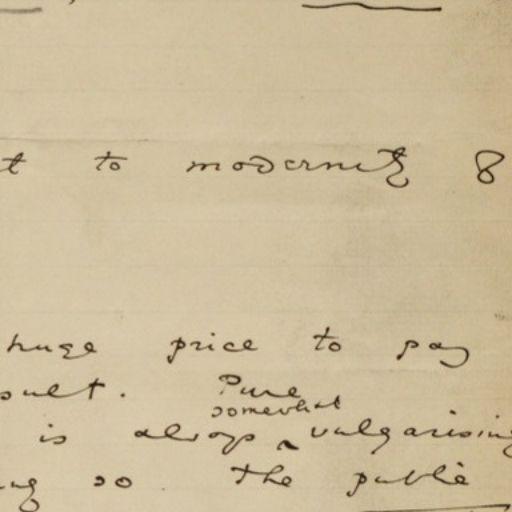 t to modernity 8
huge price to pay
sult. Pure
somewhat
is always vulgarising
ng so. The public